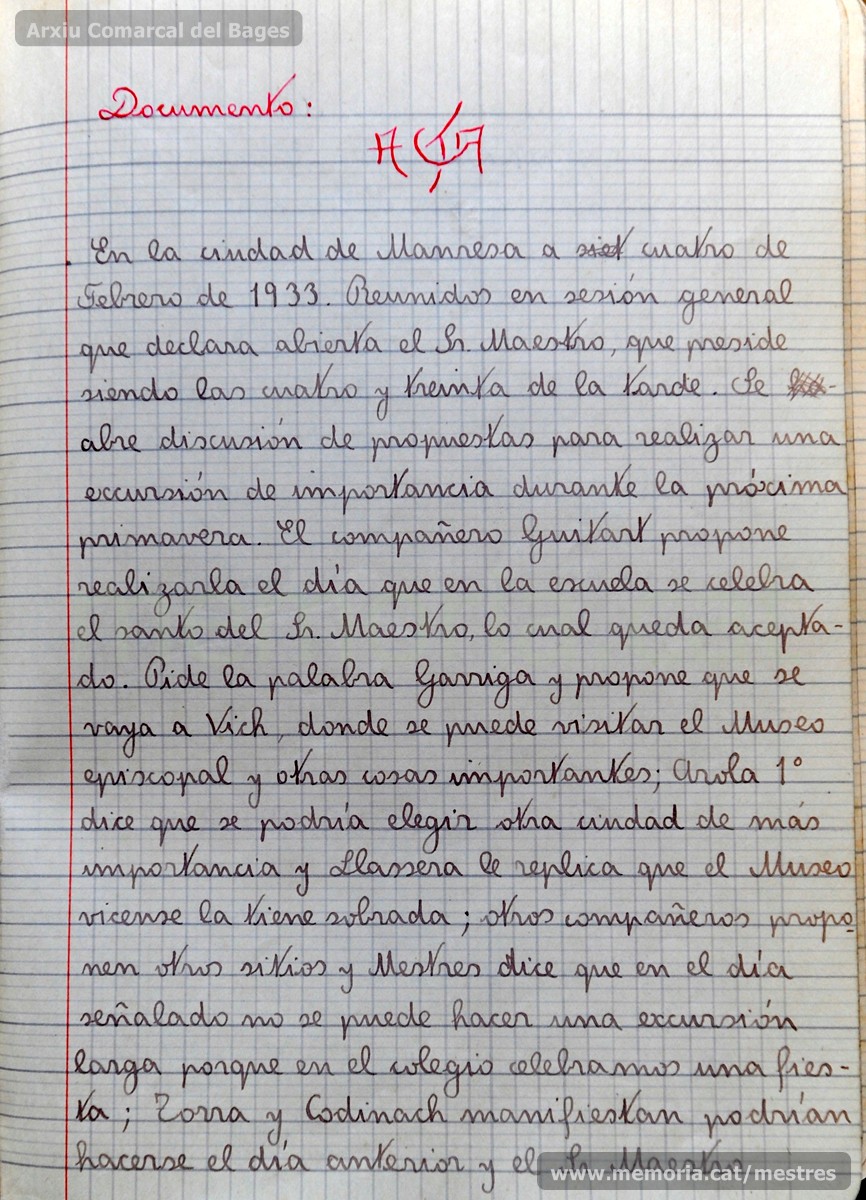 Arxiu Comarcal del Bages
Documento:
ACTA
En la ciudad de Manresa a siet cuatro de
Febrero de 1933. Reunidos en sesión general
que declara abierta el Sr. Maestro, que preside
siendo las cuatro y treinta de la tarde. Se
abre discusión de propuestas para realizar una
excursión de importancia durante la próxima
primavera. El compañero Guitart propone
realizarla el día que en la escuela se celebra
el santo del Sr. Maestro, lo cual queda acepta-
do. Pide la palabra Garriga y propone que se
vaya a Vich, donde se puede visitar el Museo
episcopal y otras cosas importantes; Arola 1º
dice que se podría elegir otra ciudad de más
importancia y Llassera le replica que el Museo
vicense la tiene sobrada; otros compañeros propo-
nen otros sitios y Mestres dice que en el día
señalado no se puede hacer una excursión
larga porque en el colegio celebramos una fies-
ta; Torra y Codinach manifiestan podrían
hacerse el día anterior y el Sr. Maestro
www.memoria.cat/mestres